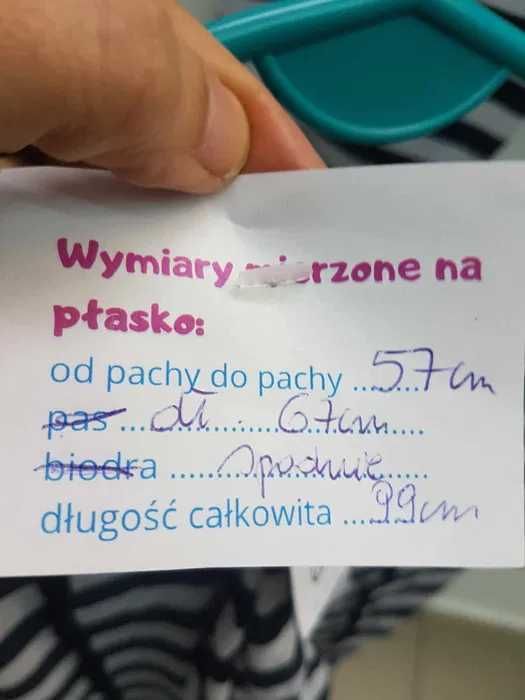 Wymiary mierzone na
płasko:
od pachy do pachy ...57cm
pas ... dł. 67cm
biodra ... spodnie
długość całkowita ... 99cm